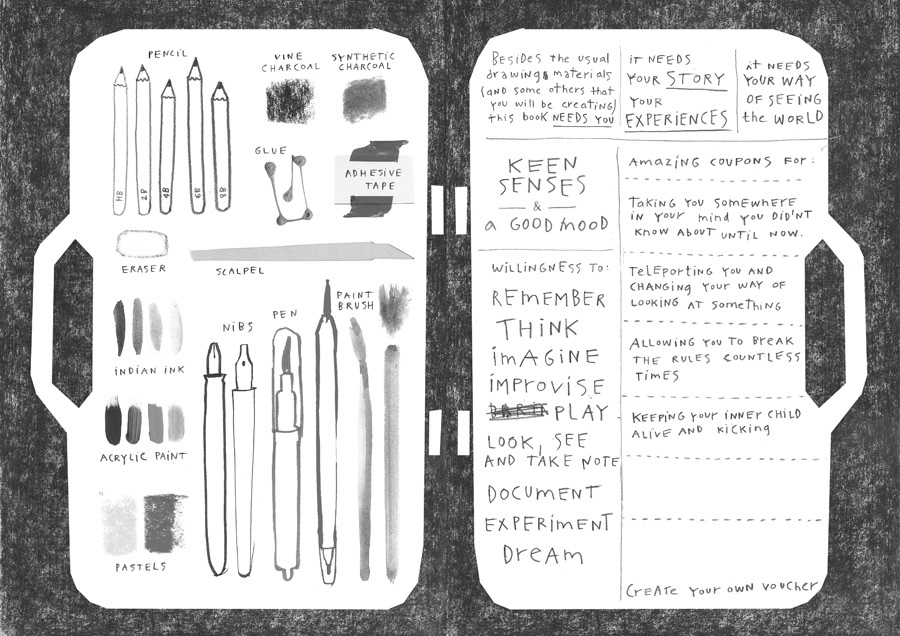 PENCIL
VINE
CHARCOAL
SYNTHETIC
CHARCOAL
HB
2B
4B
6B
8B
GLUE
ADHESIVE
TAPE
ERASER
SCALPEL
INDIAN INK
NIBS
PEN
PAINT
BRUSH
ACRYLIC PAINT
PASTELS
BESIDES the usual
drawing materials
(and some others that
you will be creating)
this book NEEDS YOU
iT NEEDS
YOUR STORY
YOUR
EXPERIENCES
it NEEDS
YOUR WAY
OF SEEING
the WORLD
KEEN
SENSES
&
a GOOD mOOD
WiLLiNGNESS TO:
REmEmBER
THiNK
imAGiNE
imPROViSE
PLAY
LOOK, SEE
AND TAKE NOTE
DOCUmENT
EXPERimENT
DREAm
AmAZiNG COUPONS FOR:
TAKiNG YOU SOmEWHERE
iN YOUR miND YOU DiD'NT
KNOW ABOUT UNTiL NOW.
TELEPORTiNG YOU AND
CHANGiNG YOUR WAY OF
LOOKiNG AT SOmEthiNG
ALLOWiNG YOU TO BREAK
THE RULES COUNTLESS
TimES
KEEPiNG YOUR iNNER CHiLD
ALiVE AND KiCKiNG
CREATE YOUR OWN VOUCHER